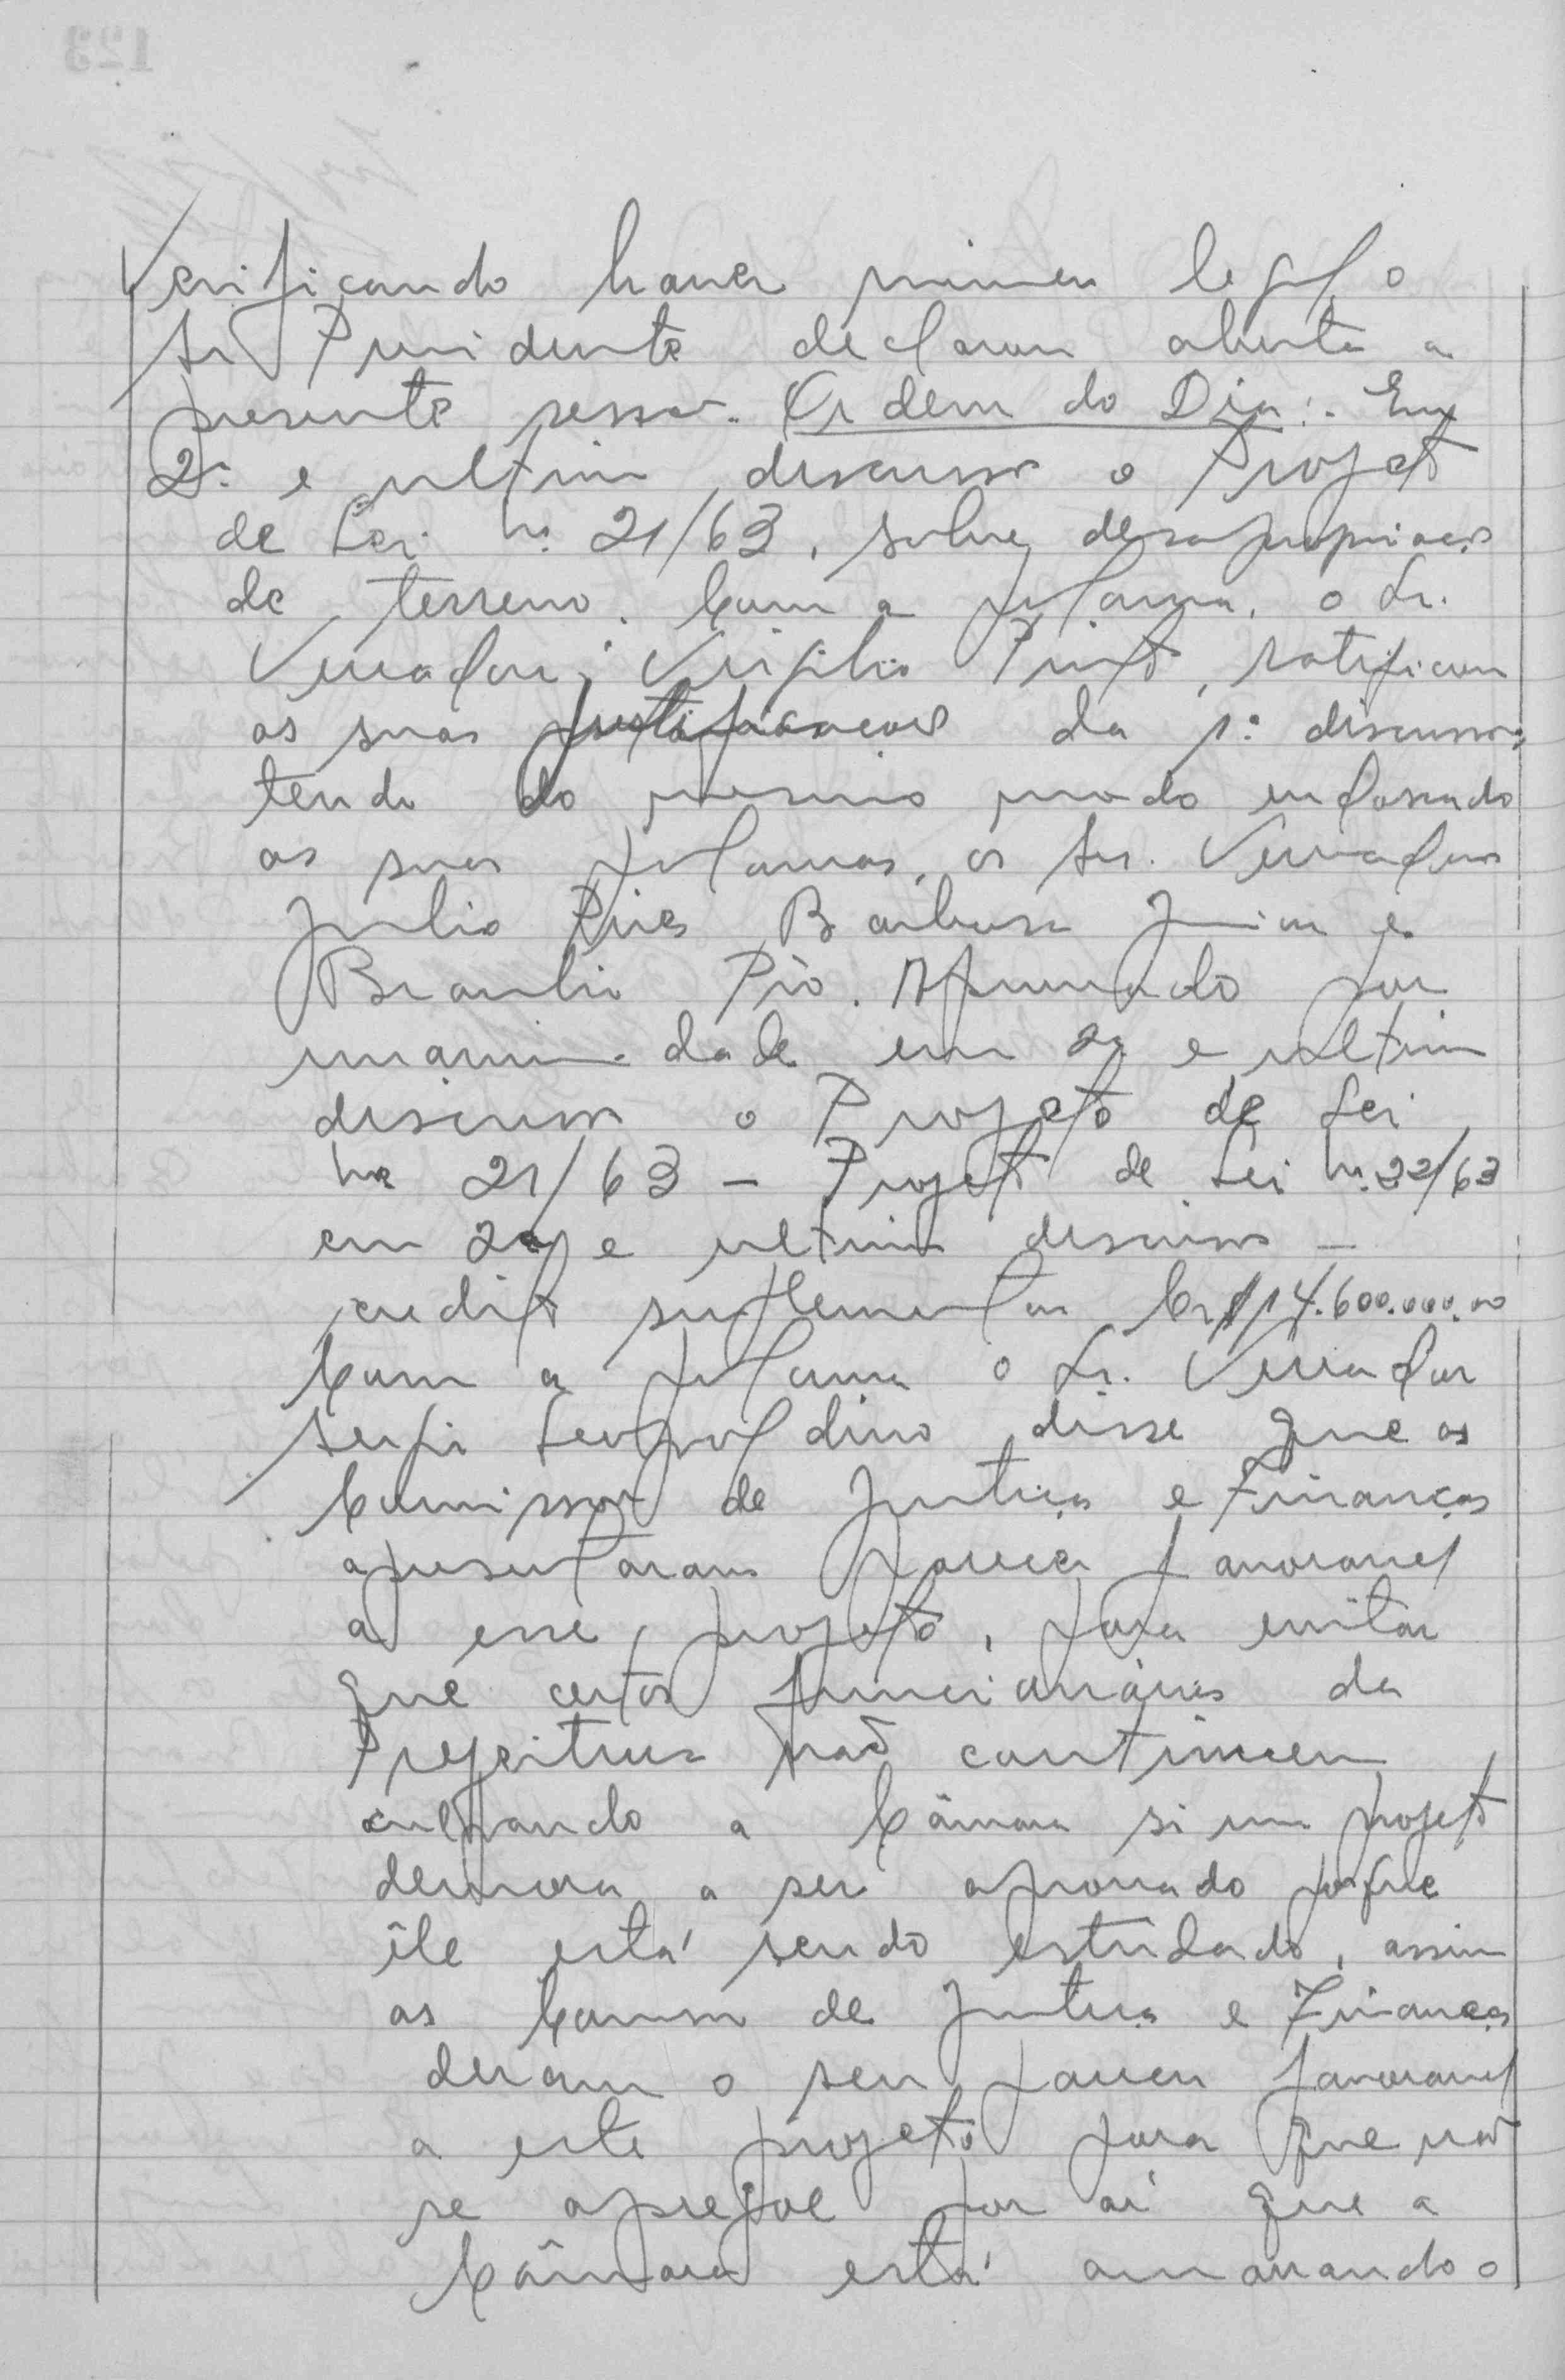 Verificando haver numero legal o
Sr Presidente declarou aberta a
presente sessão. Ordem do Dia:. Em
2ª e ultima discussão o Projeto
de Lei nº 21/63, sobre desapropriação
de terreno. Com a palavra, o Sr.
Vereador, Virgilio Pinto, ratificou
as suas justificações da 1ª discussão,
tendo do mesmo modo endossado
as suas palavras, os Srs. Vereadores
Julio Pires Barbosa Junior e
Braulio Pio. Aprovado por
unanimidade em 2ª e ultima
discussão o Projeto de Lei
nº 21/63 - Projeto de Lei nº 22/63
em 2ª e ultima discussão -
credito suplementar Cr$ 14.600.000,00
Com a palavra o Sr. Vereador
Sergio Leopoldino disse que as
Comissões de Justiça e Finanças
apresentaram parecer favoravel
a esse projeto, para evitar
que certos funcionários da
Prefeitura não continuem
culpando a Câmara si um projeto
demora a ser aprovado porque
êle está sendo estudado, assim
as Comissões de Justiça e Finanças
deram o seu parecer favoravel
a este projeto para que não
se apregoe por aí que a
Câmara está amarrando o